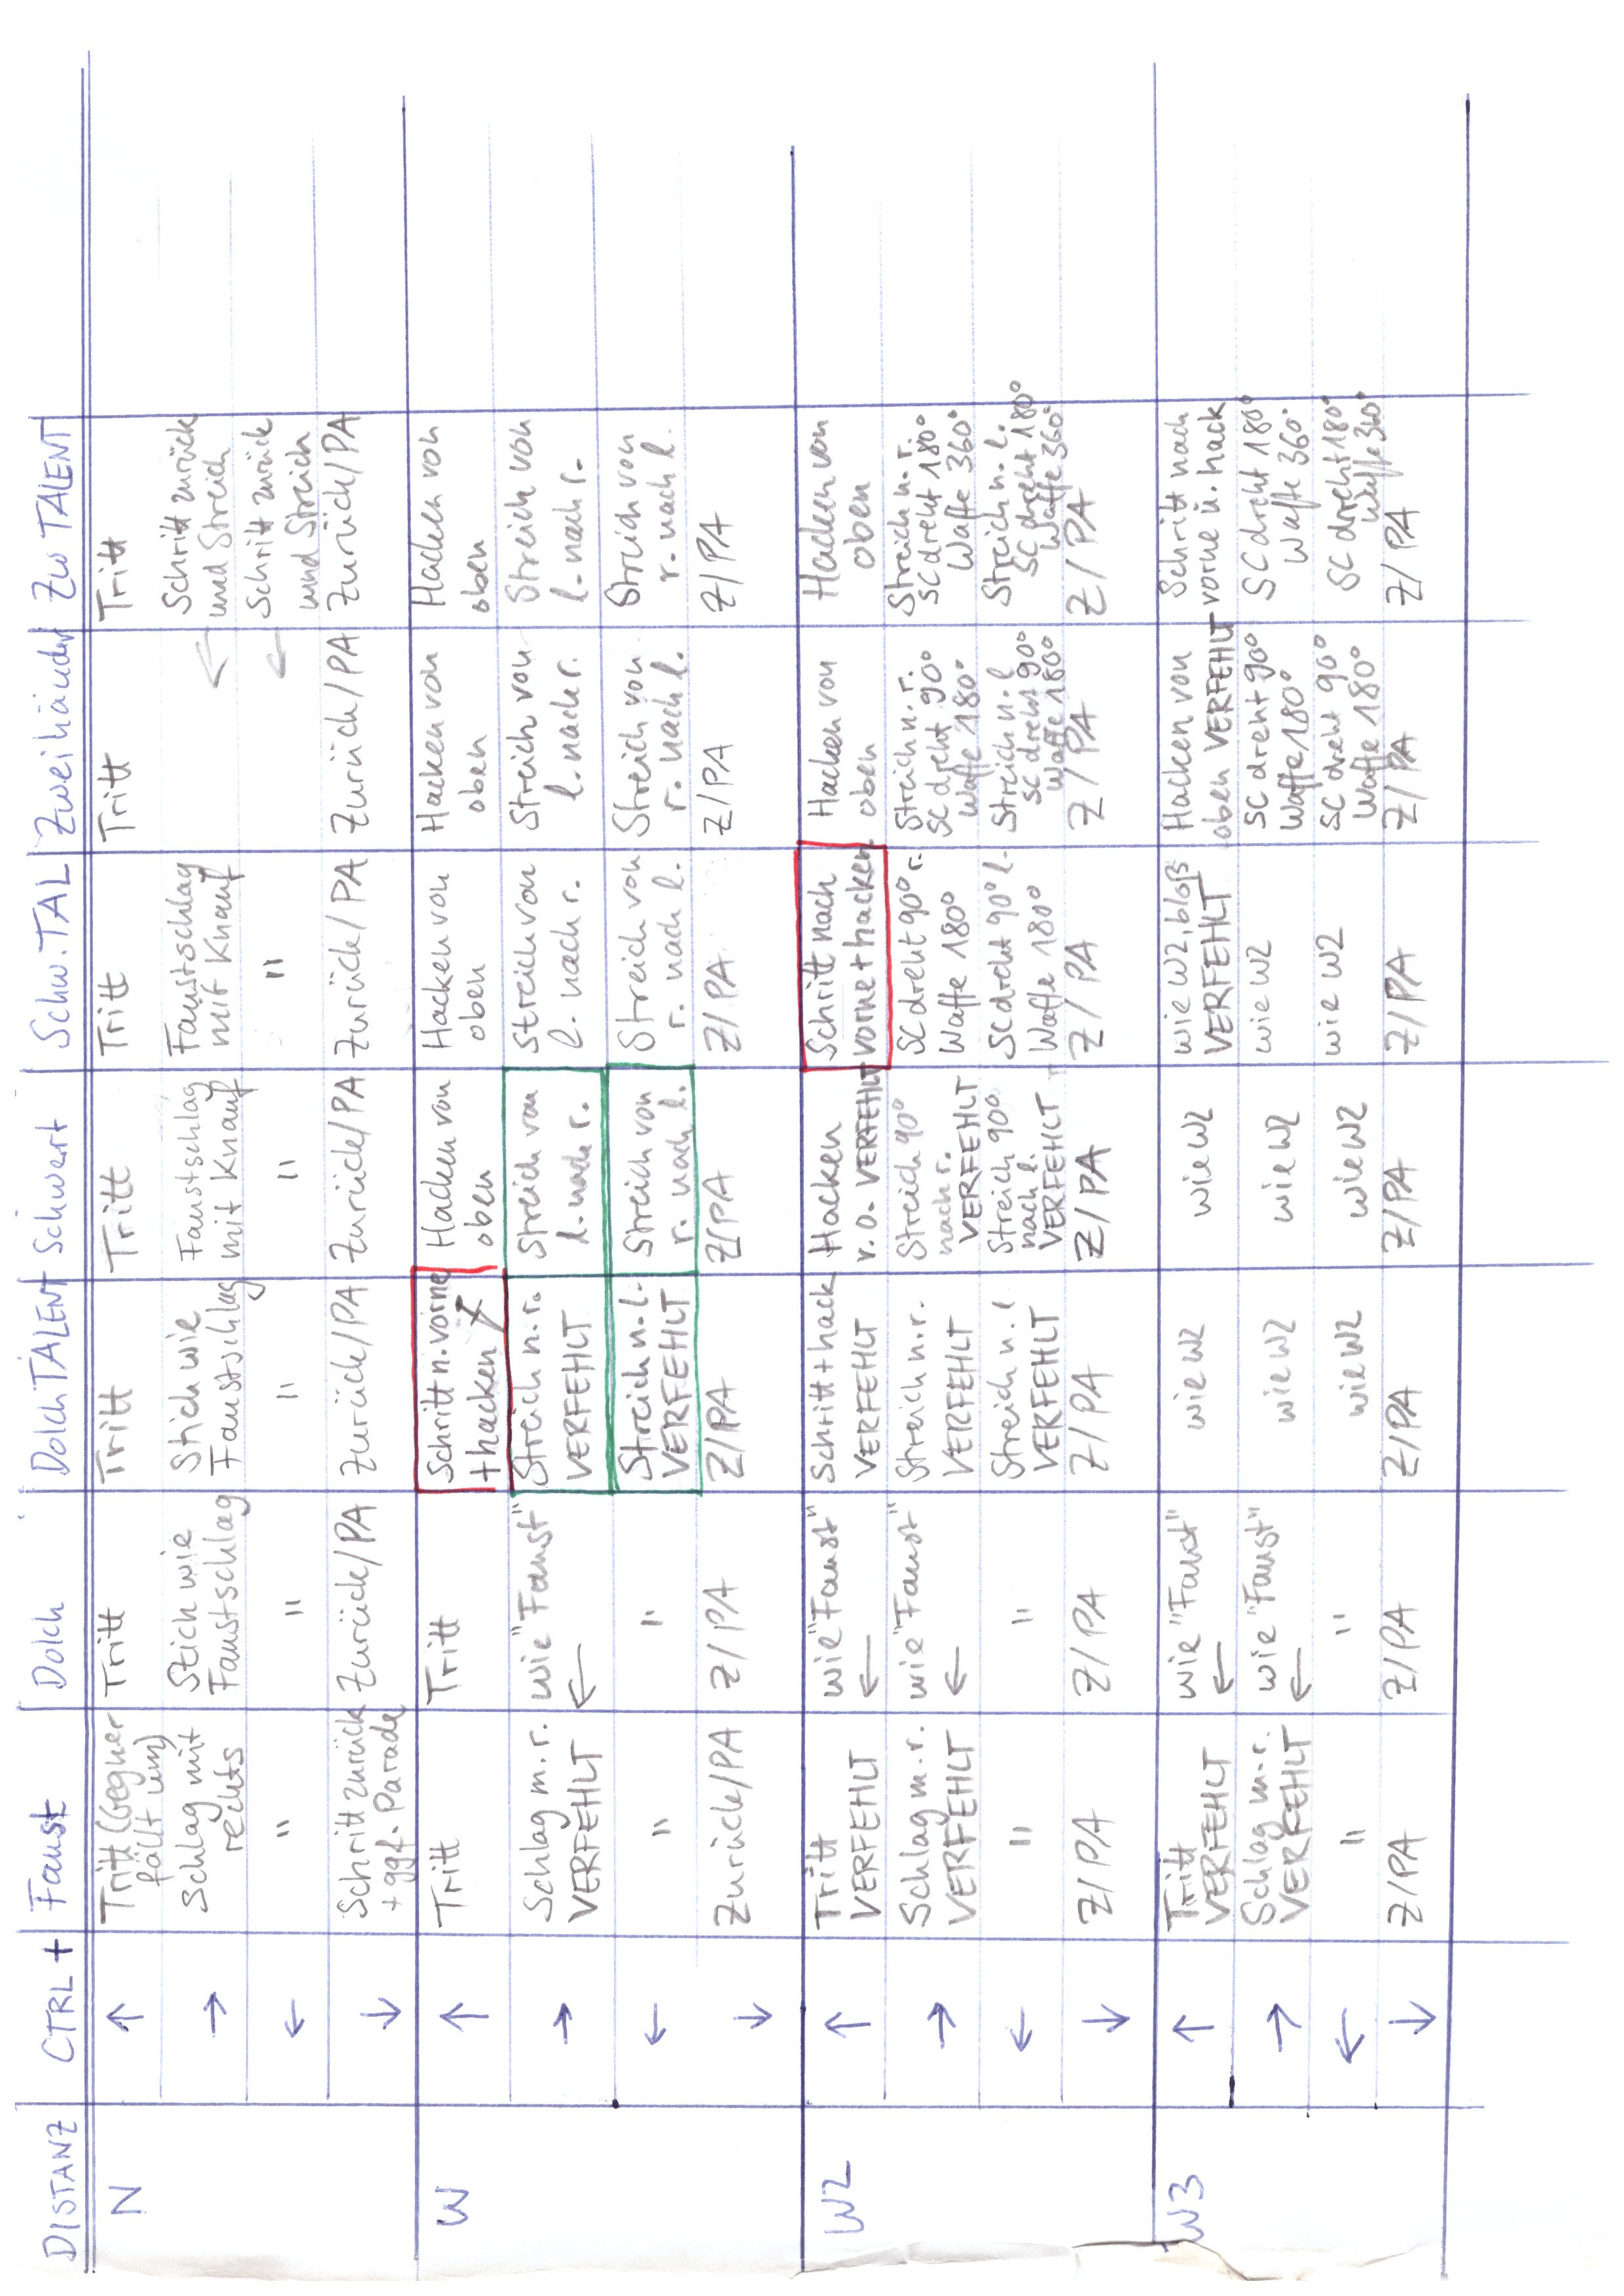 DISTANZ CTRL + Faust Dolch Dolch TALENT Schwert Schw. TAL Zweihänder Zw TALENT
N ↑ Tritt (Gegner fällt um) Tritt Tritt Tritt Tritt Tritt Tritt
→ Schlag mit rechts Stich wie Faustschlag Stich wie Faustschlag Faustschlag mit Knauf Faustschlag mit Knauf ← Schritt zurück und Streich
← " " " " " ← Schritt zurück und Streich
↓ Schritt zurück + ggf. Parade Zurück/PA Zurück/PA Zurück/PA Zurück/PA Zurück/PA Zurück/PA
W ↑ Tritt Tritt Schritt n. vorne + hacken Hacken von oben Hacken von oben Hacken von oben Hacken von oben
→ Schlag m. r. VERFEHLT wie "Faust" ← Streich n. r. VERFEHLT Streich von l. nach r. Streich von l. nach r. Streich von l. nach r. Streich von l. nach r.
← " " Streich n. l. VERFEHLT Streich von r. nach l. Streich von r. nach l. Streich von r. nach l. Streich von r. nach l.
↓ Zurück/PA Z/PA Z/PA Z/PA Z/PA Z/PA Z/PA
W2 ↑ Tritt VERFEHLT wie "Faust" ← Schritt + hack VERFEHLT Hacken v. o. VERFEHLT Schritt nach vorne + hacken Hacken von oben Hacken von oben
→ Schlag m. r. VERFEHLT wie "Faust" ← Streich n. r. VERFEHLT Streich 90° nach r. VERFEHLT SC dreht 90° r. Waffe 180° Streich n. r. SC dreht 90° Waffe 180° Streich n. r. SC dreht 180° Waffe 360°
← " " Streich n. l VERFEHLT Streich 90° nach l. VERFEHLT SC dreht 90° l. Waffe 180° Streich n. l SC dreht 90° Waffe 180° Streich n. l. SC dreht 180° Waffe 360°
↓ Z/PA Z/PA Z/PA Z/PA Z/PA Z/PA Z/PA
W3 ↑ Tritt VERFEHLT wie "Faust" ← wie W2 wie W2 wie W2, bloß VERFEHLT Hacken von oben VERFEHLT Schritt nach vorne u. hack
→ Schlag m. r. VERFEHLT wie "Faust" ← wie W2 wie W2 wie W2 SC dreht 90° Waffe 180° SC dreht 180° Waffe 360°
← " " wie W2 wie W2 wie W2 SC dreht 90° Waffe 180° SC dreht 180° Waffe 360°
↓ Z/PA Z/PA Z/PA Z/PA Z/PA Z/PA Z/PA